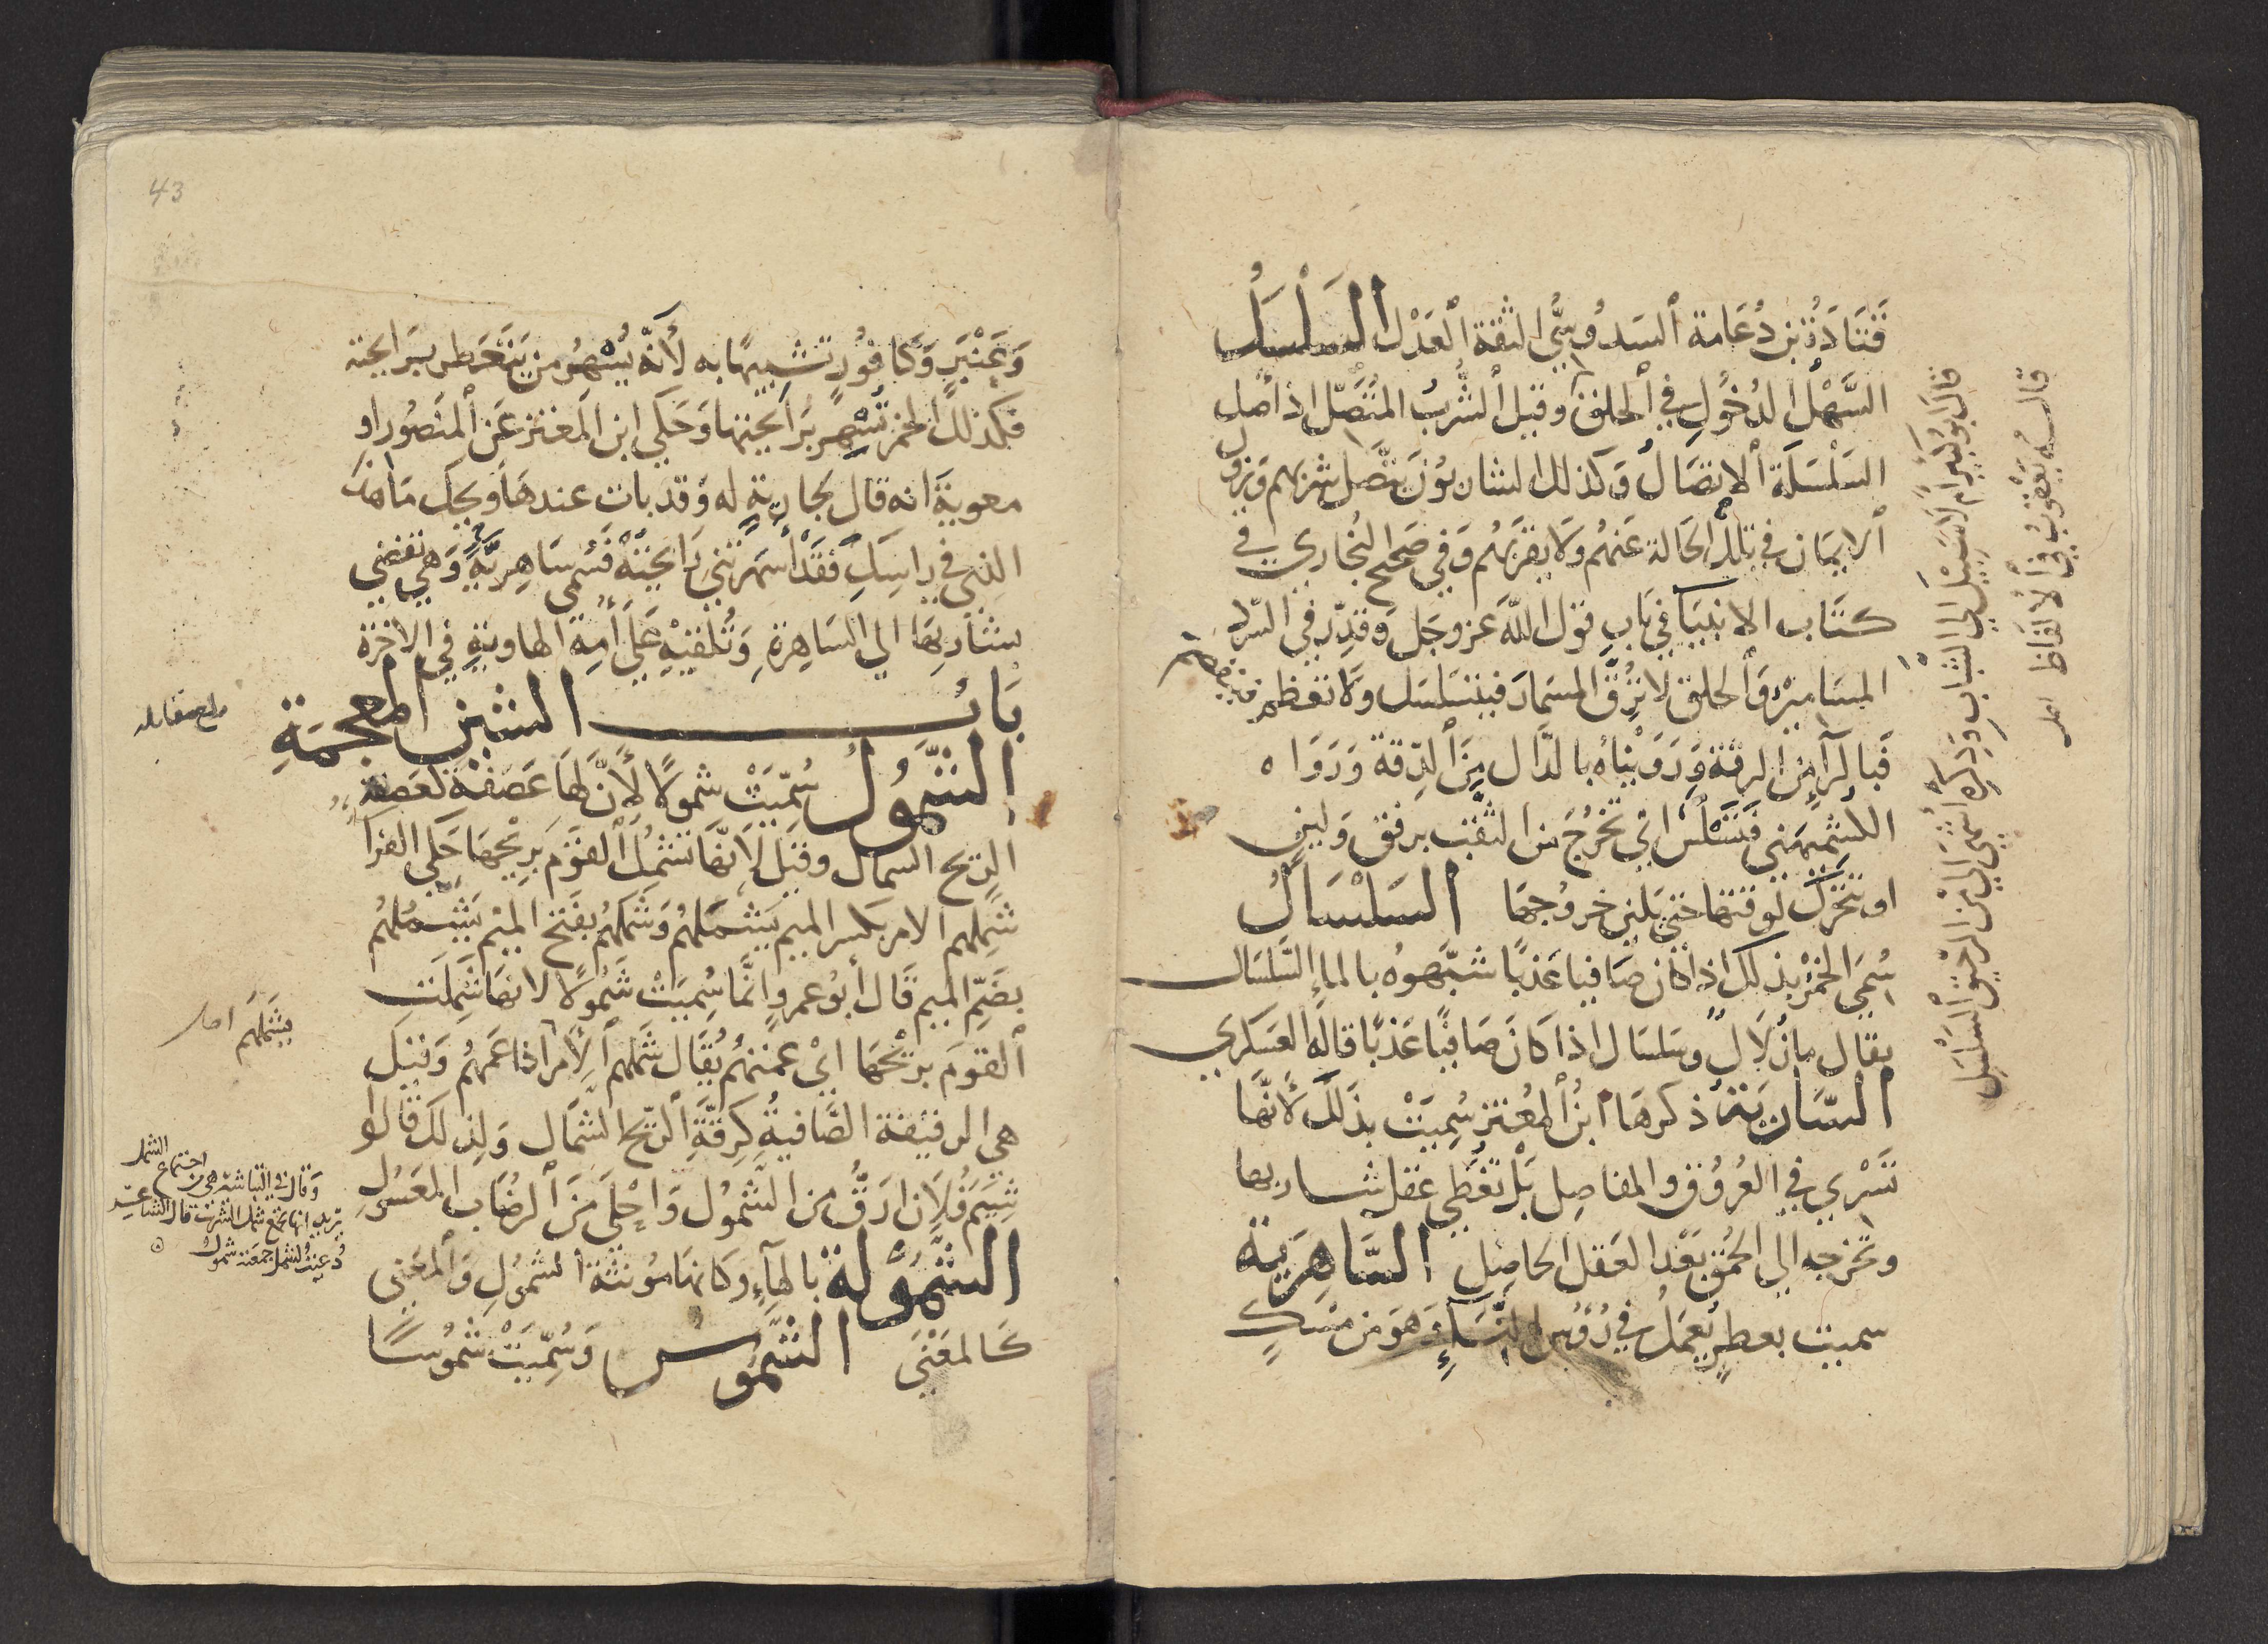 قَتَادَةُ بن دُعَامة السَدُوسِيُّ الثقة العَدْل السَلْسَلُ
السَّهْل الدُخُولِ في الحلق وقيل الشُّربُ المتَّصِّل اذ أصل
السَلْسَلَة الاتصَالُ وَكذلك الشاربُونَ يتَّصِل شربهم وَيزول
الايمَان في تلك الحَالة عَنهُم وَلا يقربهُم وَفي صَحيح البُخاري في
كتَاب الانبيَا في بَاب قول اللّه عز وجَل وَقدّر في السّرد
المسَاميْر وَالحلق لا تُرِقَّ المسمَار فيتسَلسَل ولا تعظم فينفصم
فَبالرآءِ مِنَ الرقة وَرَوَيْنَاه بالدَّال مِنَ الدِّقة وَرَوَاه
الكشميهَني فيسْلَسُ اي تخرُجَ من الثقب برفق وَلينٍ
او تتحَرَّك لوقتها حتى يَلينَ خرُوجهَا السَلْسَالُ
سُمّيَ الخمْرُ بذلك اذا كان صَافيا عَذبًا شبّهوه بالماءِ السَّلسَال
يقال ماءٌ زلَالٌ وسَلسَال اذا كَان صَافيًا عَذبًا قاله العَسكري
السَّارِيَةُ ذكرهَا ابنُ المُعتز سُمِيَتْ بذَلكَ لأنّهَا
تَسْري في العُرُوق والمفاصِل بَلْ تغَطّي عَقل شاربها
وَتخرجه الي الحُمْق بَعْد العَقل الحاصِل السَّاهِرَيةُ
سميت بعطرٍ يُعمَلُ في رُؤس النّسَآءِ وَهوَ من مسْكٍ
قال ابو كبير ام لَا سَبِيْلَ الي الشَّبابِ وَذِكرُه أشْهَي اليَّ مِنَ الرَّحيقِ السَّلْسَلِ
قالهُ يَعْقوبُ في الألفَاظ اصل
43
وَعَنْبَرٍ وَكَافورٍ تشبيهًا به لأنّه يُسْهِرُ من يتَعَطر برَايحته
فكذلك الخمر تُسْهر برَايحتها وَحَكي ابن المُعتز عَن المنصُور او
معوية انه قال لجارِيَةٍ له وقد بات عندهَا ويحك مَا هذا
الذي في راسِكِ فَقَدْ أسْهَرَتْني رَايحتَهُ فَسُمّي سَاهِرِيَّةً وَهي تفضي
بشاربِهَا الي السَاهِرَةِ وَتُلقيْهِ عَلَى أُمِه الهاويَةِ في الاخرة
بَابُ الشين المعجمَةِ
الشَّمُولُ سُمّيَتْ شمولًا لأَنَّ لهَا عَصفَةً كعصفة
الريح الشمال وقيل لأنّهَا تشملُ القوَم بريْحهَا حَكَي الفرا
شَمِلهم الامر بكسر الميم يَشْمَلهُم وَشَمَلهُم بفَتح الميْم يَشْمُلهُم
بضَمّ الميم قَال أبُو عمروٍ وانَّمَا سُمِيَتْ شَمُولًا لانهَا شَمِلَتِ
القوَم بريْحهَا ايْ عمتهُم يُقَال شَملهم الأمر اذا عَمهُم وَقيل
هي الرقيقة الصَّافيةُ كَرِقَّةِ الرِّيح الشَّمَال وَلِذلك قَالُوا
شِيَمُ فُلَانٍ ارَقُّ من الشَّمُول وَاحْلَى مَن الرضَاب المعسُولِ
الشَّمُوْلَة بالهآءِ وكَانهَا مؤنثة الشمُول وَالمعَني
كَالمعْنَى الشَّمُوسُ وَسُمّيَتْ شَمُوسًا
بلغ مقابله
يَشْمَلَهُم اصل